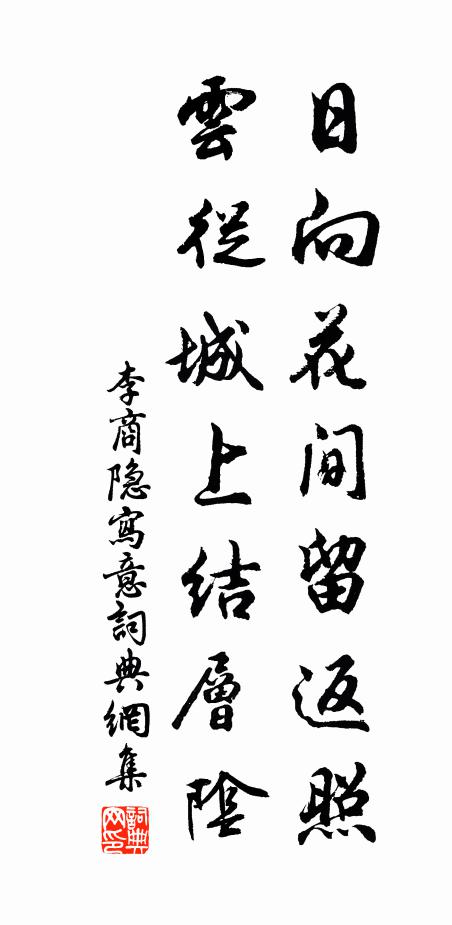 日向花間留返照
雲從城上結層陰
李商隐寫意詞典網集
詞典
网印